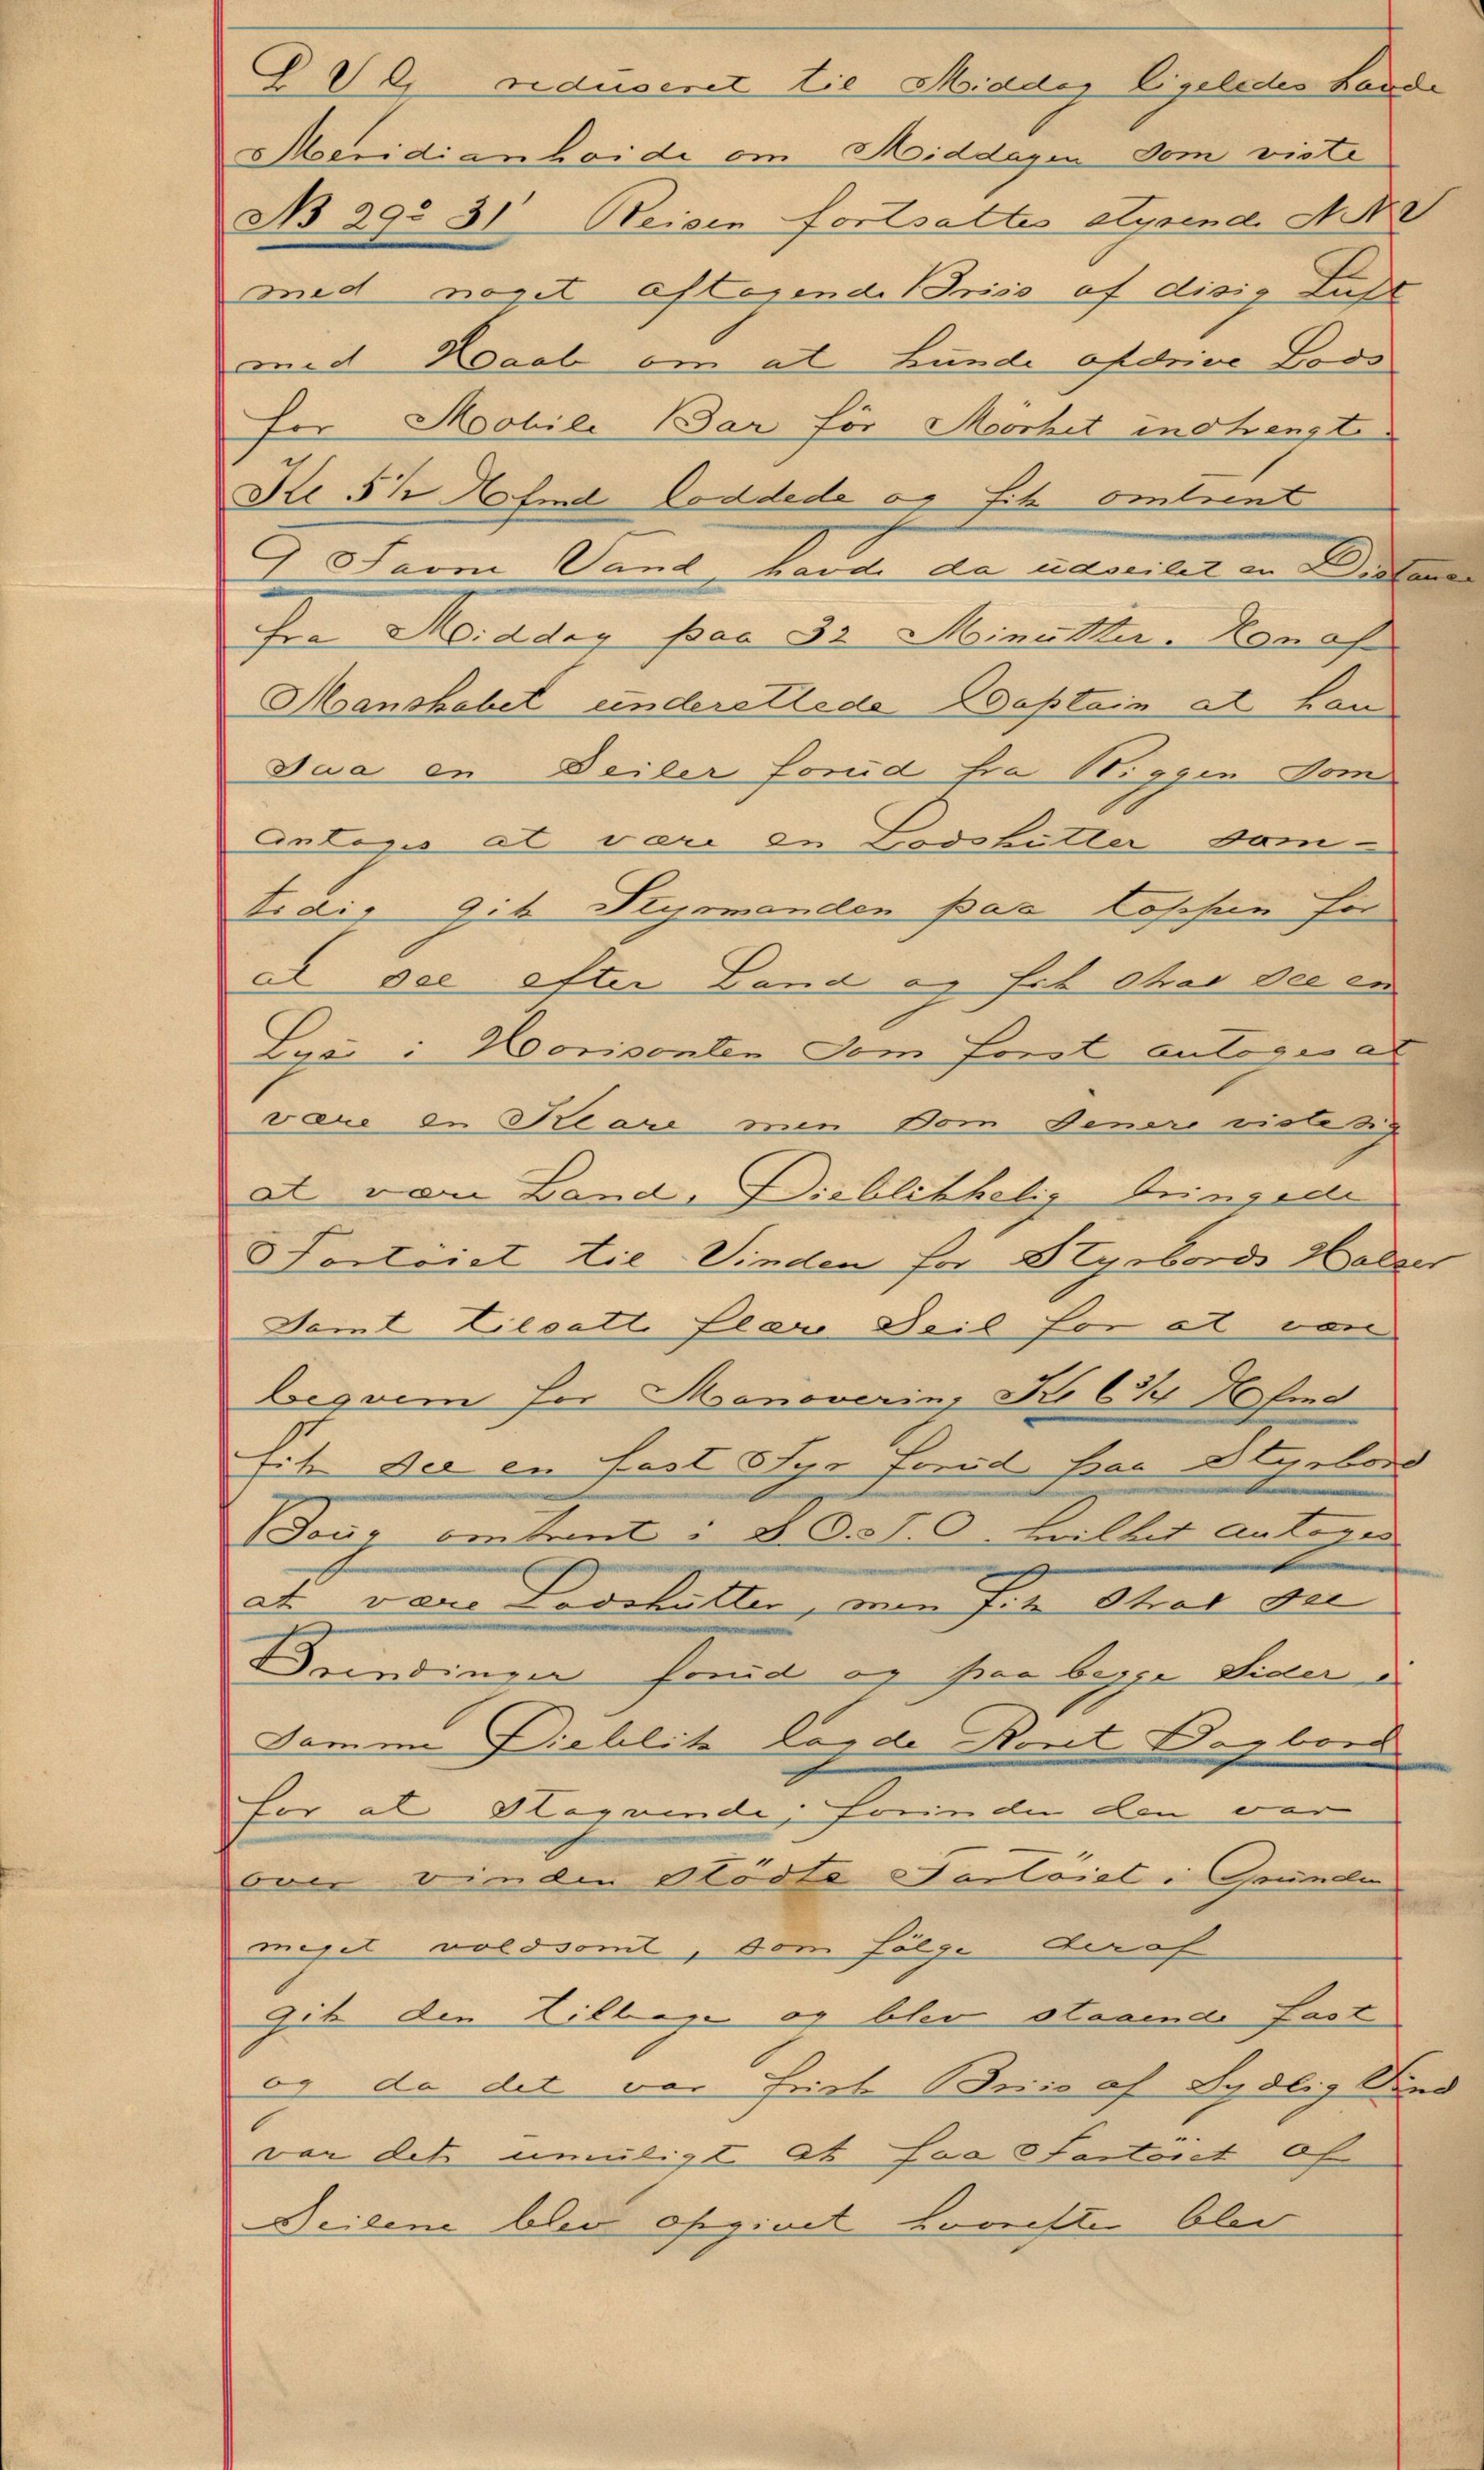 P V L, reduseret til Middag ligeledes havde
Meridianhoide om Middagen som viste
NB 29° 31' Reisen fortsattes styrende N.N.V
med noget aftagende Bris af disig Luft
med Haab om at kunde opdrive Lods
for Mobile Bar för Mörket indtrengte.
Kl 5½ Efmd loddede og fik omtrent
9 Favne Vand, havde da udseilet en Distance
fra Middag paa 32 Minutter. En af
Manskabet underettede Captain at han
saa en Seiler forud fra Riggen som
antoges at være en Lodskutter sam-
tidig gik Styrmanden paa toppen for
at see efter Land og fik strax see en
Lys i Horisonten som forst antoges at
være en Klare men som senere viste sig
at være Land. Øieblikkelig bringede
Fartöiet til Vinden for Styrbords Halser
samt tilsatte flere Seil for at være
beqvem for Manovering Kl 6¾ Efmd
fik see en fast Fyr forud paa Styrbord
Boug omtrent i S.O.t.O. hvilket antoges
at være Lodskutter, men fik strax see
Brendinger forud og paa begge Sider i
samme Øieblik lagde Roret Bagbord
for at Stagvende; forinden den var
over vinden Stödte Fartöiet i Grunden
meget voldsomt, som fölge deraf
gik den Tilbage og blev staaende fast
og da det var frisk Bris af Sydlig Vind
var det umüligt at faa Fartöiet af
Seilene blev opgivet hvorefter blev